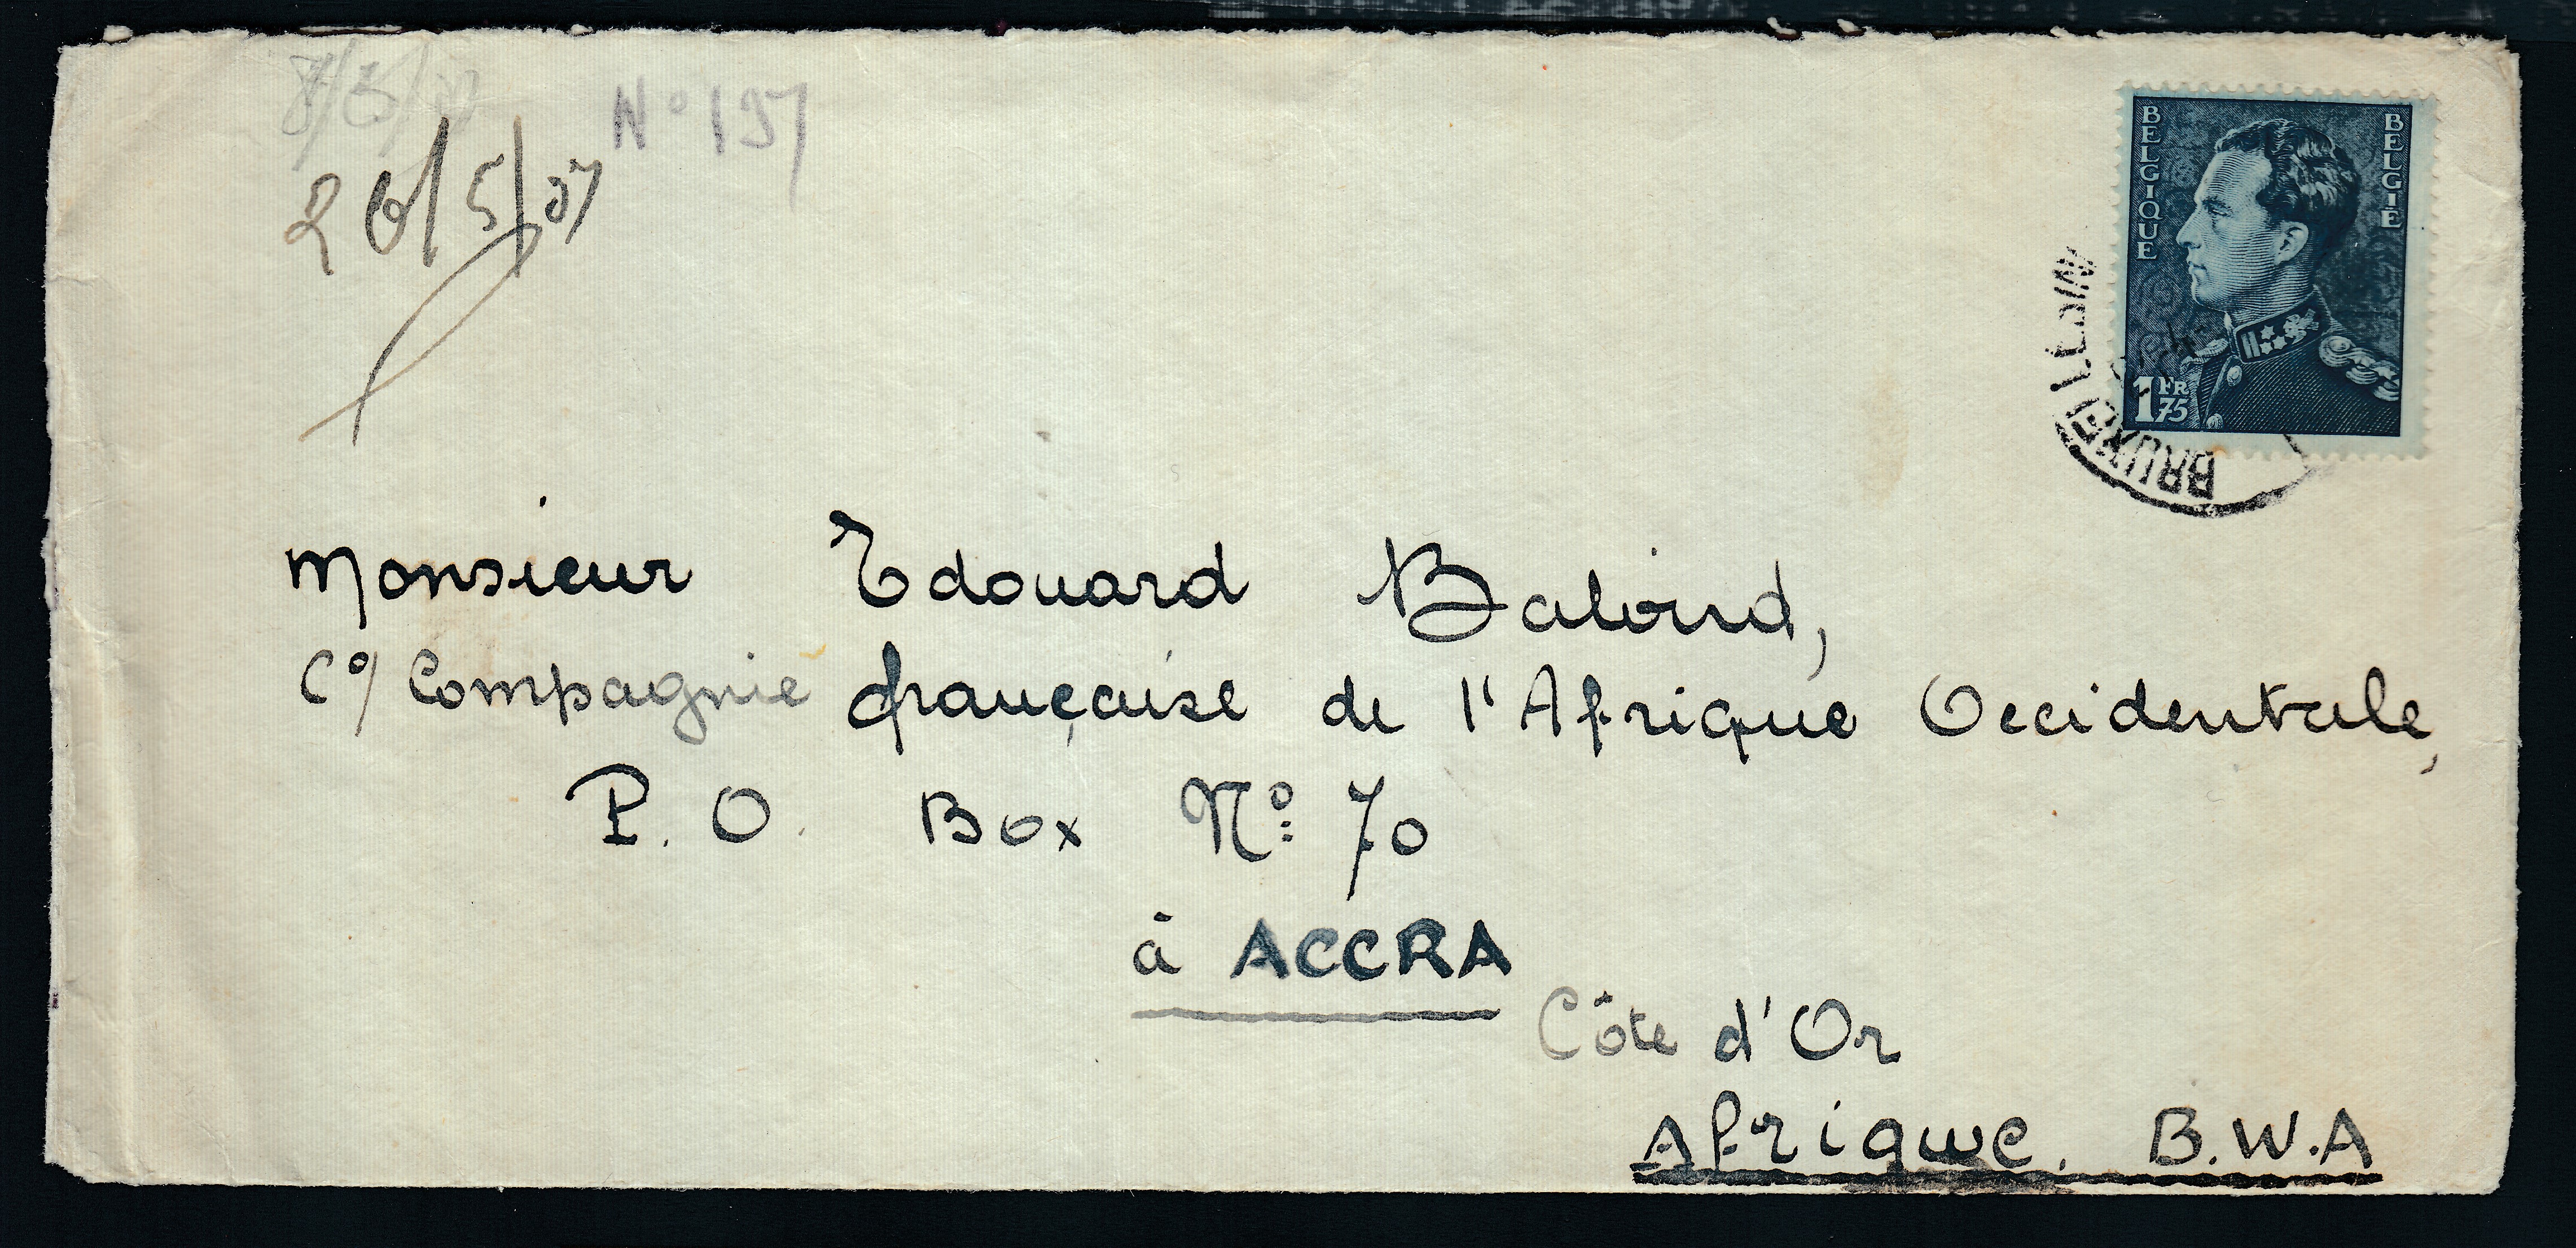 N° 197
26/5/37
BELGIQUE
BELGIË
1 FR 75
BRUXELL
Monsieur Edouard
C°/ Compagnie française de l'Afrique Occidentale,
P. O. Box N° 70
à ACCRA
Côte d'Or
Afrique. B.W.A